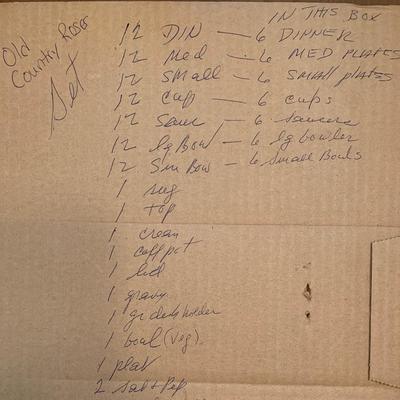 Old
Country Roses
Set
IN THIS BOX
12 DIN — 6 DINNER
12 Med — 6 MED PLATES
12 SMall — 6 SMall plates
12 Cup — 6 cups
12 Sauc — 6 saucers
12 lg Bowl — 6 lg bowls
12 Sm Bow — 6 Small Bowls
1 sug
1 top
1 cream
1 coff pot
1 lid
1 gravy
1 holder
1 bowl (Veg)
1 plat
2 Salt & Pep